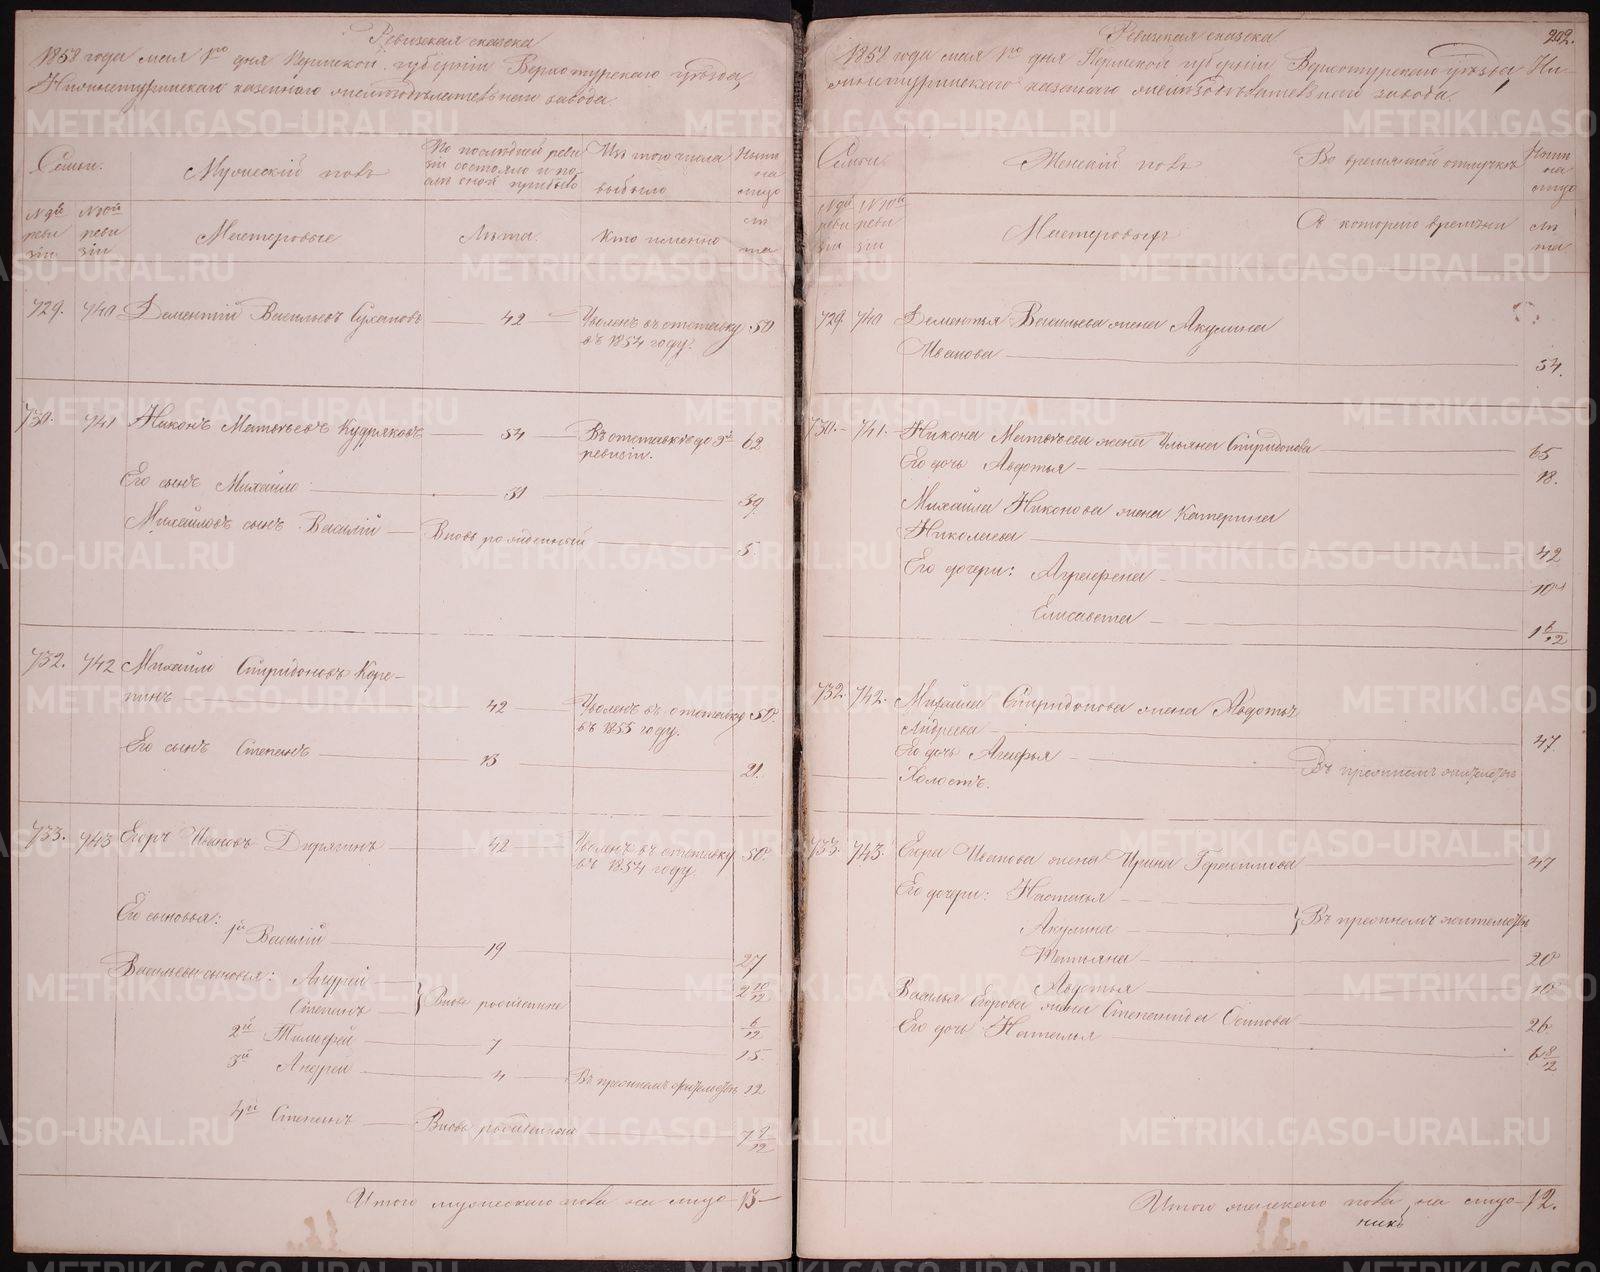 Ревизская сказка
1858 года мая 1го дня Пермской губернiи Верхотурскаго уѣзда,
Нижнетуринскаго казеннаго желѣзодѣлательнаго завода.
Семьи.
Мужескiй полъ
По послѣдней реви
зiи состояло и по-
слѣ оной прибыло
Изъ того числа
выбыло
Нынѣ
на
лицо
№ 9й
реви
зiи
№ 10й
реви
зiи
Мастеровые
Лѣта.
Кто именно
лѣ
та
729.
740
Дементiй Васильевъ Сухановъ
42
Уволенъ въ отставку
въ 1854 году.
50
730.
741
Никонъ Матвѣевъ Кудряковъ
54
Въ отставкѣ до 9й
ревизiи.
62
Его сынъ Михайло
31
39
Михайловъ сынъ Василiй
Вновь рожденный
5
732.
742
Михайло Спиридоновъ Коре-
пинъ
42
Уволенъ въ отставку
въ 1855 году.
50
Его сынъ Степанъ
13
21.
733.
743
Егоръ Ивановъ Дирягинъ
42
Уволенъ въ отставку
въ 1854 году
50
Его сыновья:
1й Василiй
19
27
Васильевы сыновья: Андрей
2 10/12
Степанъ
Вновь рожденные
6/12
2й Тимофей
7
15
3й Андрей
4
Въ прошломъ жительствѣ
12
4й Степанъ
Вновь рожденный
7 9/12
Итого мужескаго пола на лицо 13
Ревизская сказка
202.
1858 года мая 1го дня Пермской губернiи Верхотурскаго уѣзда, Ни-
жнетуринскаго казеннаго желѣзодѣлательнаго завода.
Семьи
Женскiй полъ
Во временной отлучкѣ
Нынѣ
на
лицо
№ 9й
реви
зiи
№ 10й
реви
зiи
Мастеровыхъ
Съ котораго времени
лѣ
та
729
740
Дементья Васильева жена Акулина
Иванова
54.
730.
741.
Никона Матвѣева жена Ульяна Спиридонова
65
Его дочь Авдотья
18.
Михайла Никонова жена Катерина
Николаева
42
Его дочери: Аграфена
10
Елисавета
1 6/12
732.
742.
Михайла Спиридонова жена Авдотья
Андреева
47
Его дочь Агафья
Холостъ.
733.
743.
Егора Иванова жена Ирина Герасимова
47
Его дочери: Настасья
Акулина
Татьяна
20
Авдотья
10
Василья Егорова жена Степанида Осипова
26
Его дочь Наталья
6 8/12
Итого женскаго пола на лицо 12.
никъ
METRIKI.GASO-URAL.RU